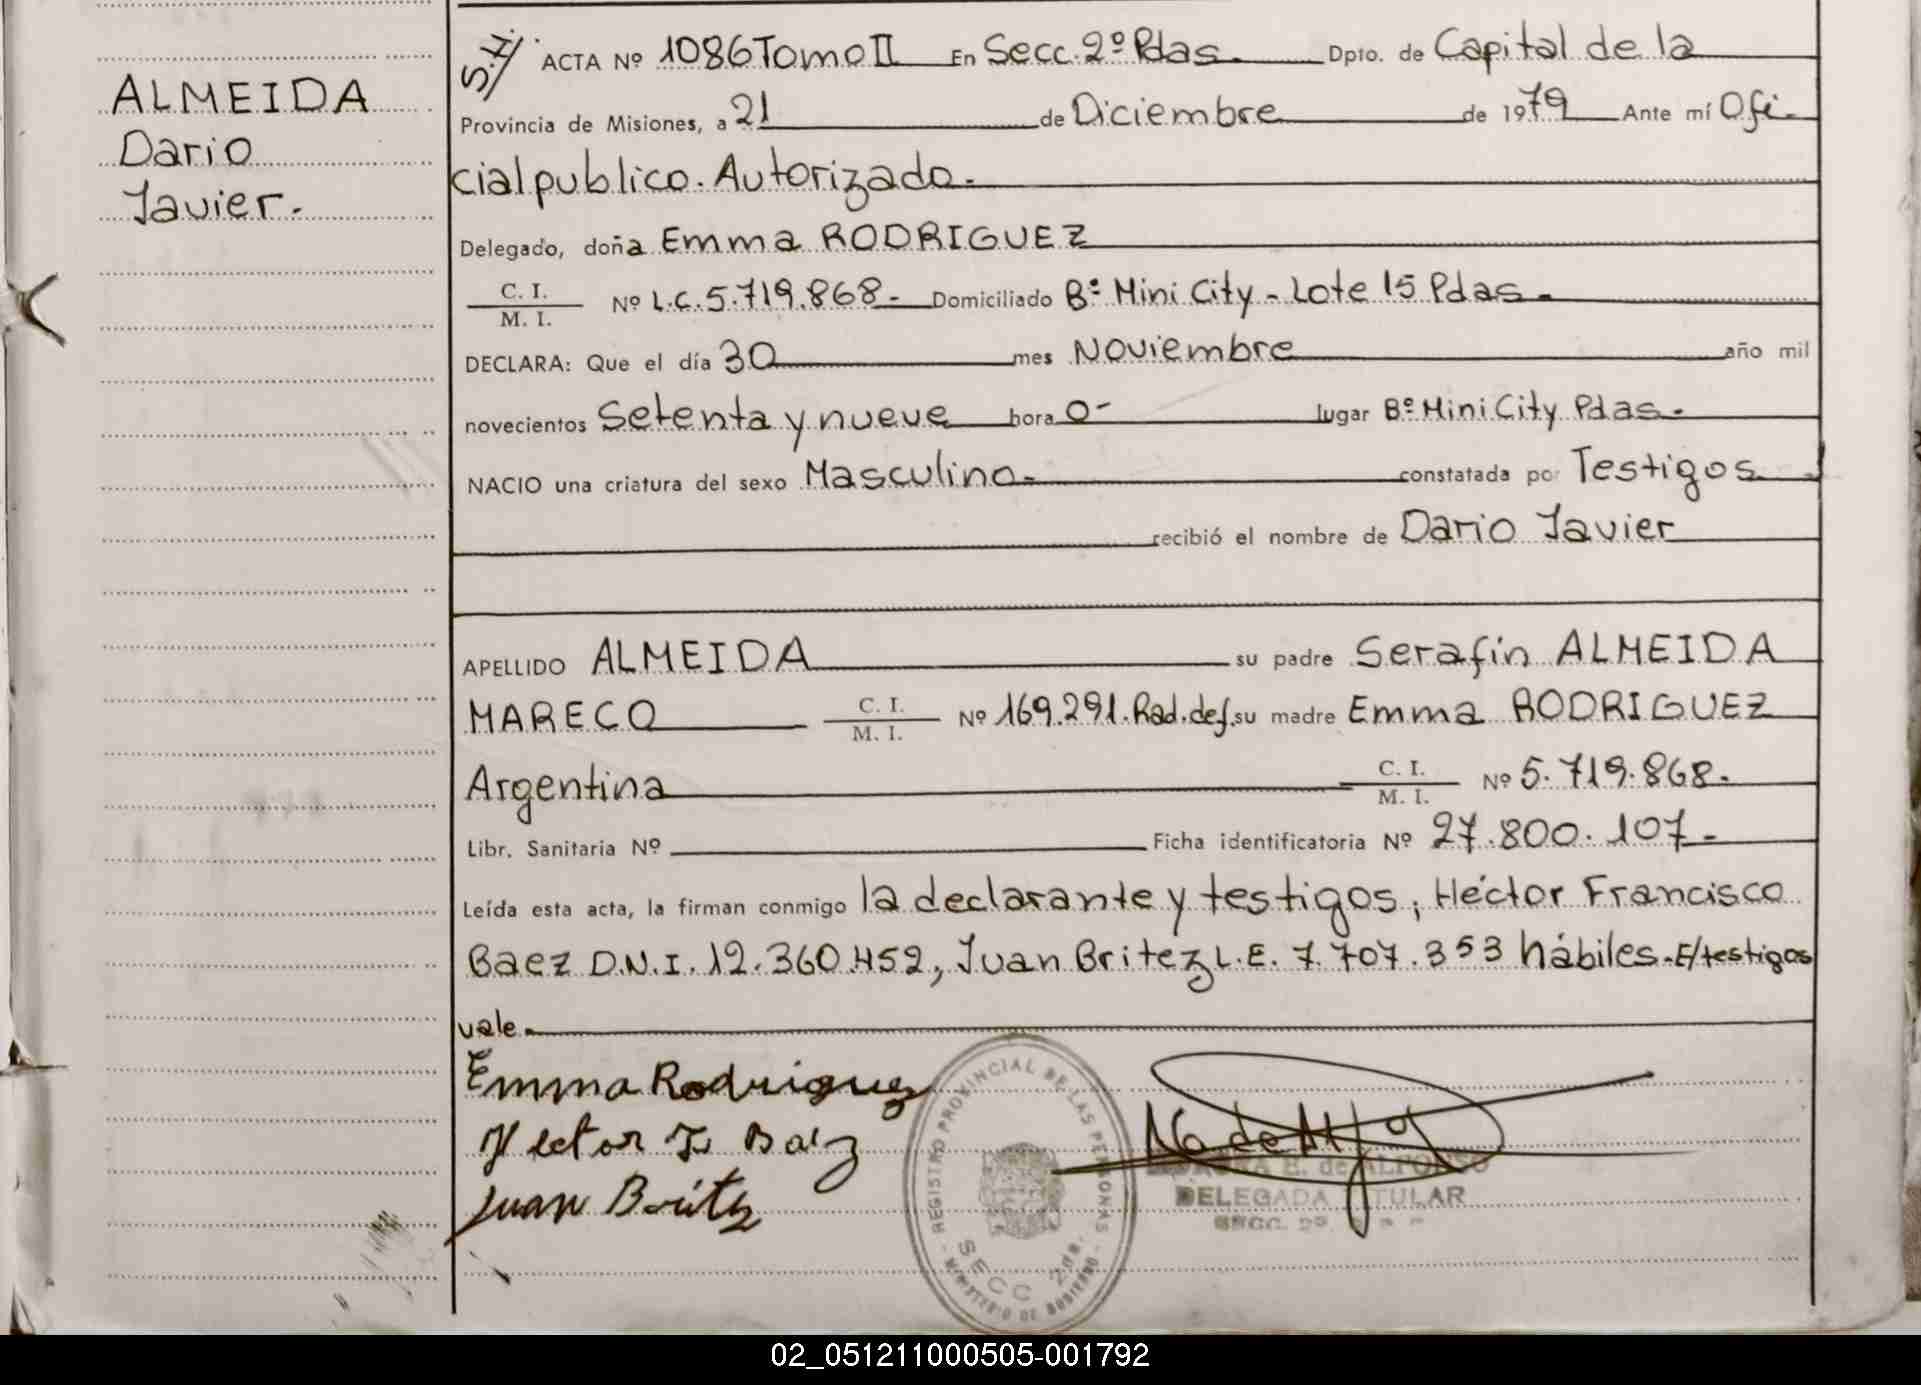 ALMEIDA
Dario
Javier.
S.H/ ACTA Nº 1086 Tomo II En Secc. 2º Pdas. Dpto. de Capital de la
Provincia de Misiones, a 21 de Diciembre de 1979 Ante mí Ofi-
cial publico. Autorizado.
Delegado, doña Emma RODRIGUEZ
C. I.
M. I. Nº L.C. 5.719.868.- Domiciliado Bº Mini City - Lote 15 Pdas.
DECLARA: Que el día 30 mes Noviembre año mil
novecientos Setenta y nueve hora 0- lugar Bº Mini City Pdas.
NACIO una criatura del sexo Masculino. constatada por Testigos
recibió el nombre de Dario Javier
APELLIDO ALMEIDA su padre Serafín ALMEIDA
MARECO C. I. M. I. Nº 169.291. Rad. def. su madre Emma RODRIGUEZ
Argentina C. I. M. I. Nº 5.719.868.
Libr. Sanitaria Nº Ficha identificatoria Nº 27.800.107.
Leída esta acta, la firman conmigo la declarante y testigos; Héctor Francisco
Baez D.N.I. 12.360.452, Juan Britez L.E. 7.707.353 hábiles. E/testigos
vale.
Emma Rodriguez
Hector F. Baez
Juan Britez
REGISTRO PROVINCIAL DE LAS PERSONAS
SECC 2da.
MINISTERIO DE GOBIERNO
E. de ALFONSO
DELEGADA TITULAR
SECC. 2º
02_051211000505-001792